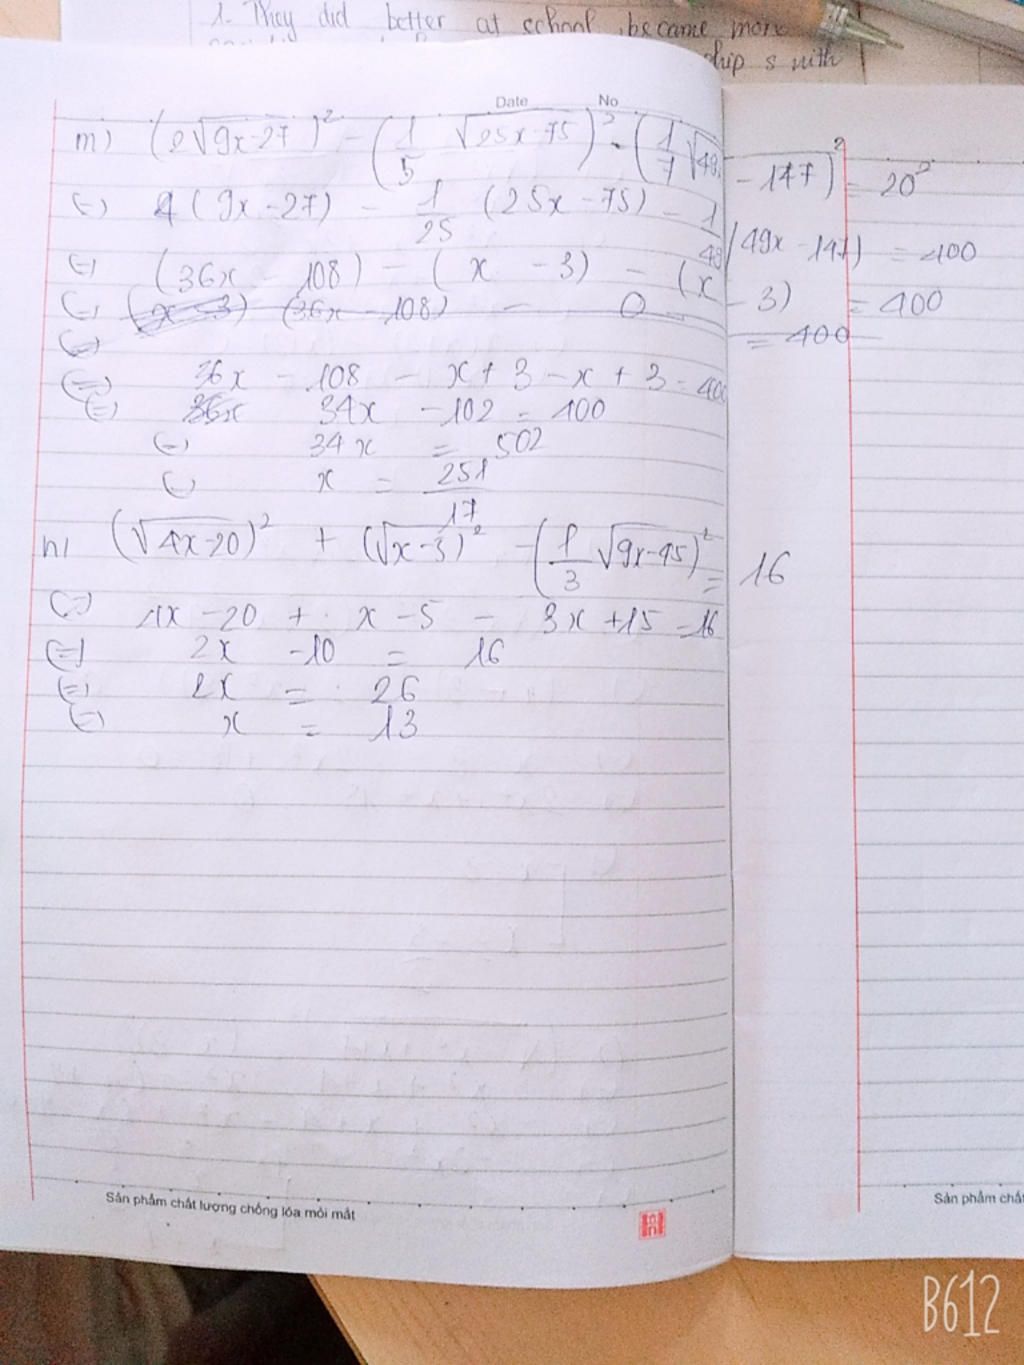 1. They did better at school, became more
ship s with
Date No
m) (2√9x-27)² - (1/5 √25x-75)² - (1/7 √49x - 147)² = 20²
(=) 4(9x-27) - 1/25 (25x-75) - 1/49 (49x - 147) = 400
(=) (36x - 108) - (x - 3) - (x - 3) = 400
(=) (x-3) (36x - 108) - 0 = 400
(=)
(=) 36x - 108 - x + 3 - x + 3 = 400
(=) 36x 34x - 102 = 400
(=) 34x = 502
(=) x = 251/17
n) (√4x-20)² + (√x-3)² - (1/3 √9x-45)² = 16
(=) 4x - 20 + x - 5 - 3x + 15 = 16
(=) 2x - 10 = 16
(=) 2x = 26
(=) x = 13
Sản phẩm chất lượng chống lóa mỏi mắt
Sản phẩm chất
B612